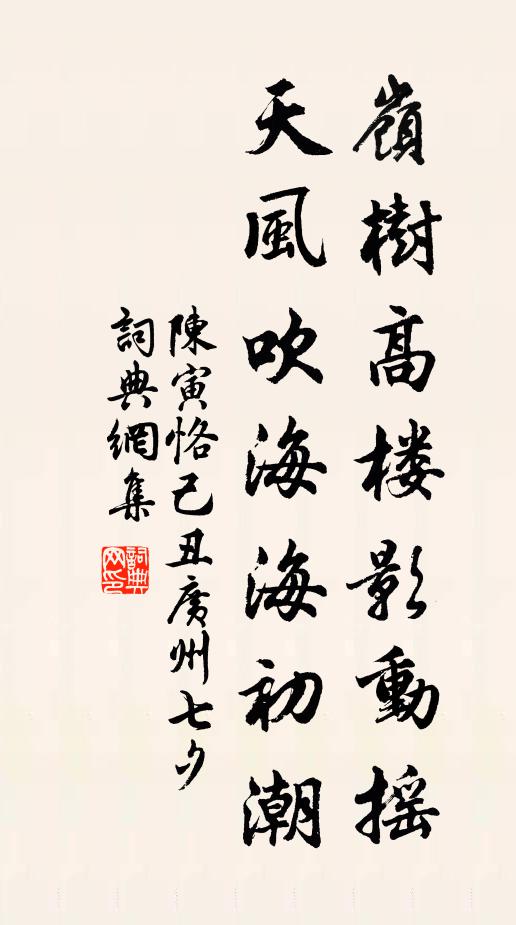 嶺樹高楼影動摇
天風吹海海初潮
陳寅恪己丑廣州七夕
詞典網集
詞典網印